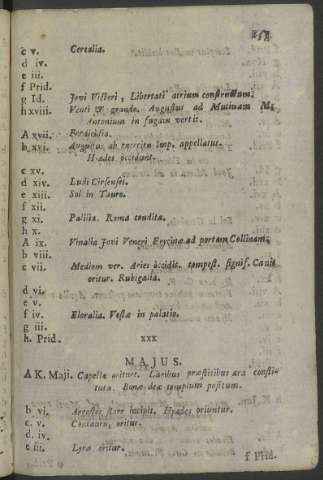 c v. Cerealia.
d iv.
e iii.
f Prid.
g Id. Jovi Victori, Libertati atrium constructum.
h xviii. Venti & grando. Augustus ad Mutinam M.
Antonium in fugam vertit.
A xvii. Fordicidia.
b xvi. Augustus ab exercitu Imp. appellatur.
Hyades occidunt.
c xv.
d xiv. Ludi Circenses.
e xiii. Sol in Tauro.
f xii.
g xi. Palilia. Roma condita.
h x.
A ix. Vinalia Jovi Veneri Erycinæ ad portam Collinam.
b viii.
c vii. Medium ver. Aries occidit. tempest. signif. Canis
oritur. Rubigalia.
d vi.
e v.
f iv. Floralia. Vestæ in palatio.
g iii.
h. Prid. xxx
MAJUS.
A K. Maji. Capella oritur. Laribus præstitibus ara consti-
tuta. Bonæ deæ templum positum.
b vi. Argestes flare incipit. Hyades oriuntur.
c. v. Centaurus, oritur.
d. iv.
e iii. Lyra oritur.
f Prid.